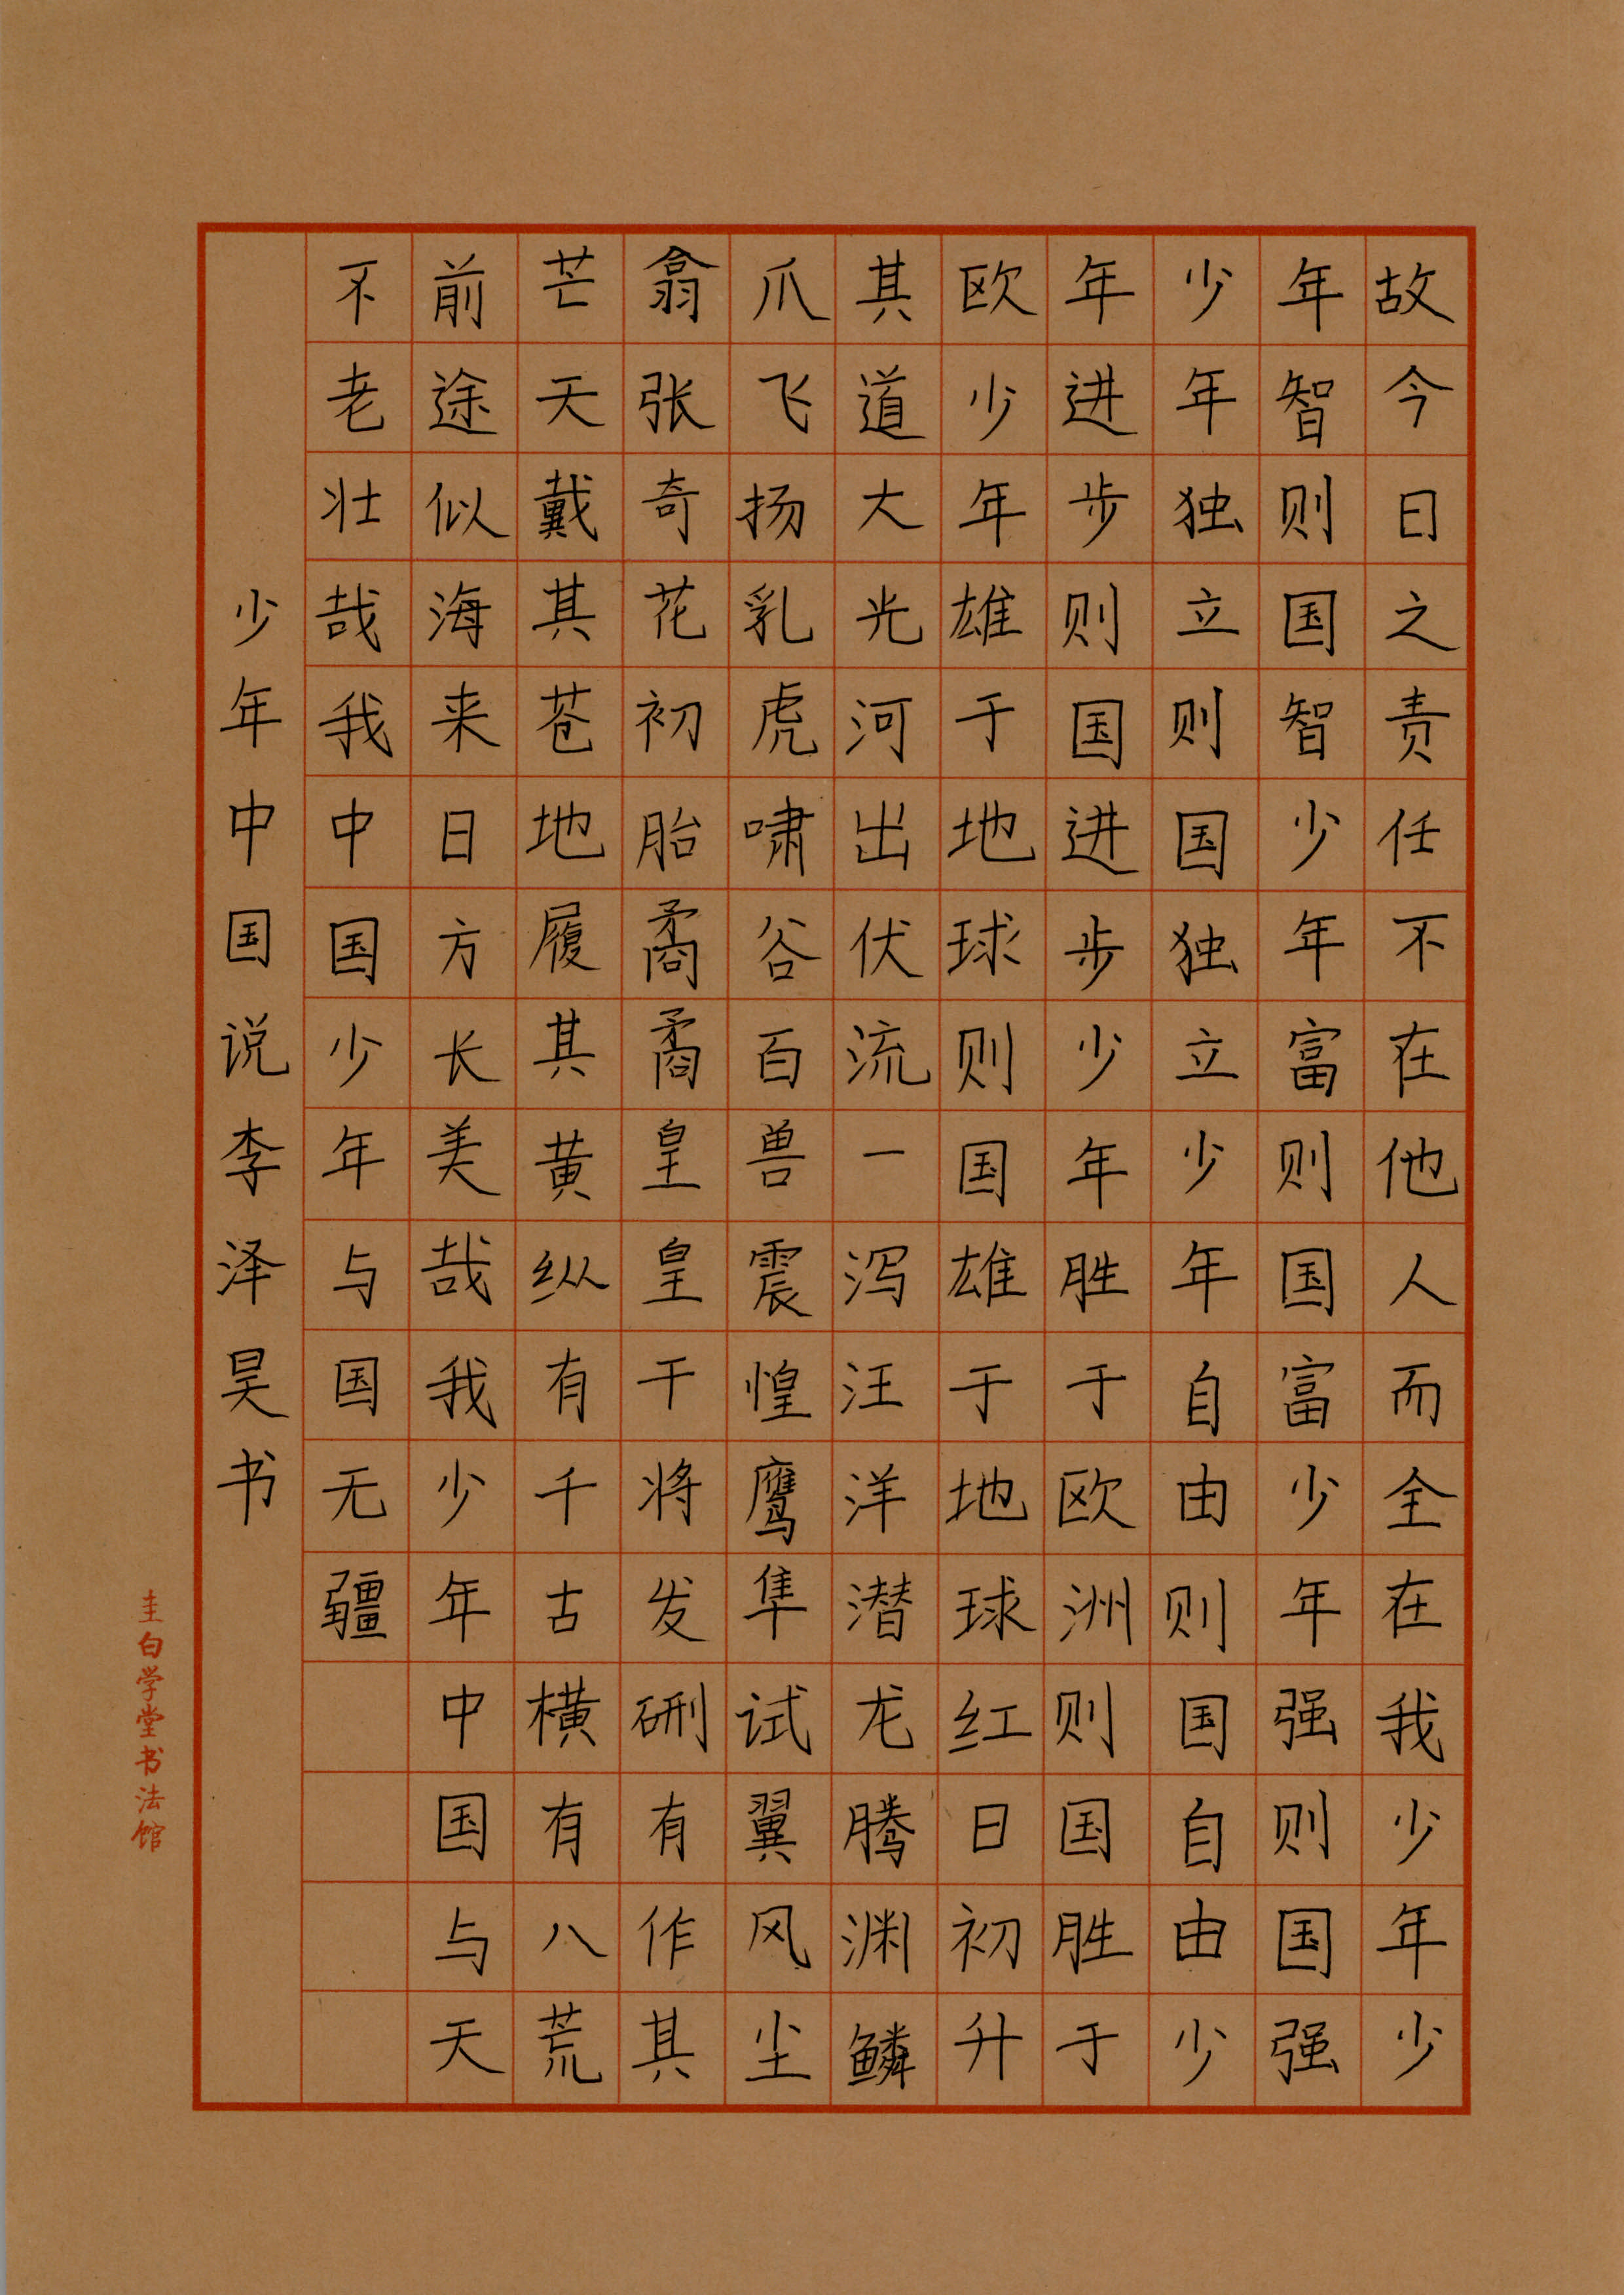 故今日之责任不在他人而全在我少年少
年智则国智少年富则国富少年强则国强
少年独立则国独立少年自由则国自由少
年进步则国进步少年胜于欧洲则国胜于
欧少年雄于地球则国雄于地球红日初升
其道大光河出伏流一泻汪洋潜龙腾渊鳞
爪飞扬乳虎啸谷百兽震惶鹰隼试翼风尘
翕张奇花初胎矞矞皇皇干将发硎有作其
芒天戴其苍地履其黄纵有千古横有八荒
前途似海来日方长美哉我少年中国与天
不老壮哉我中国少年与国无疆
少年中国说李泽昊书
圭白学堂书法馆